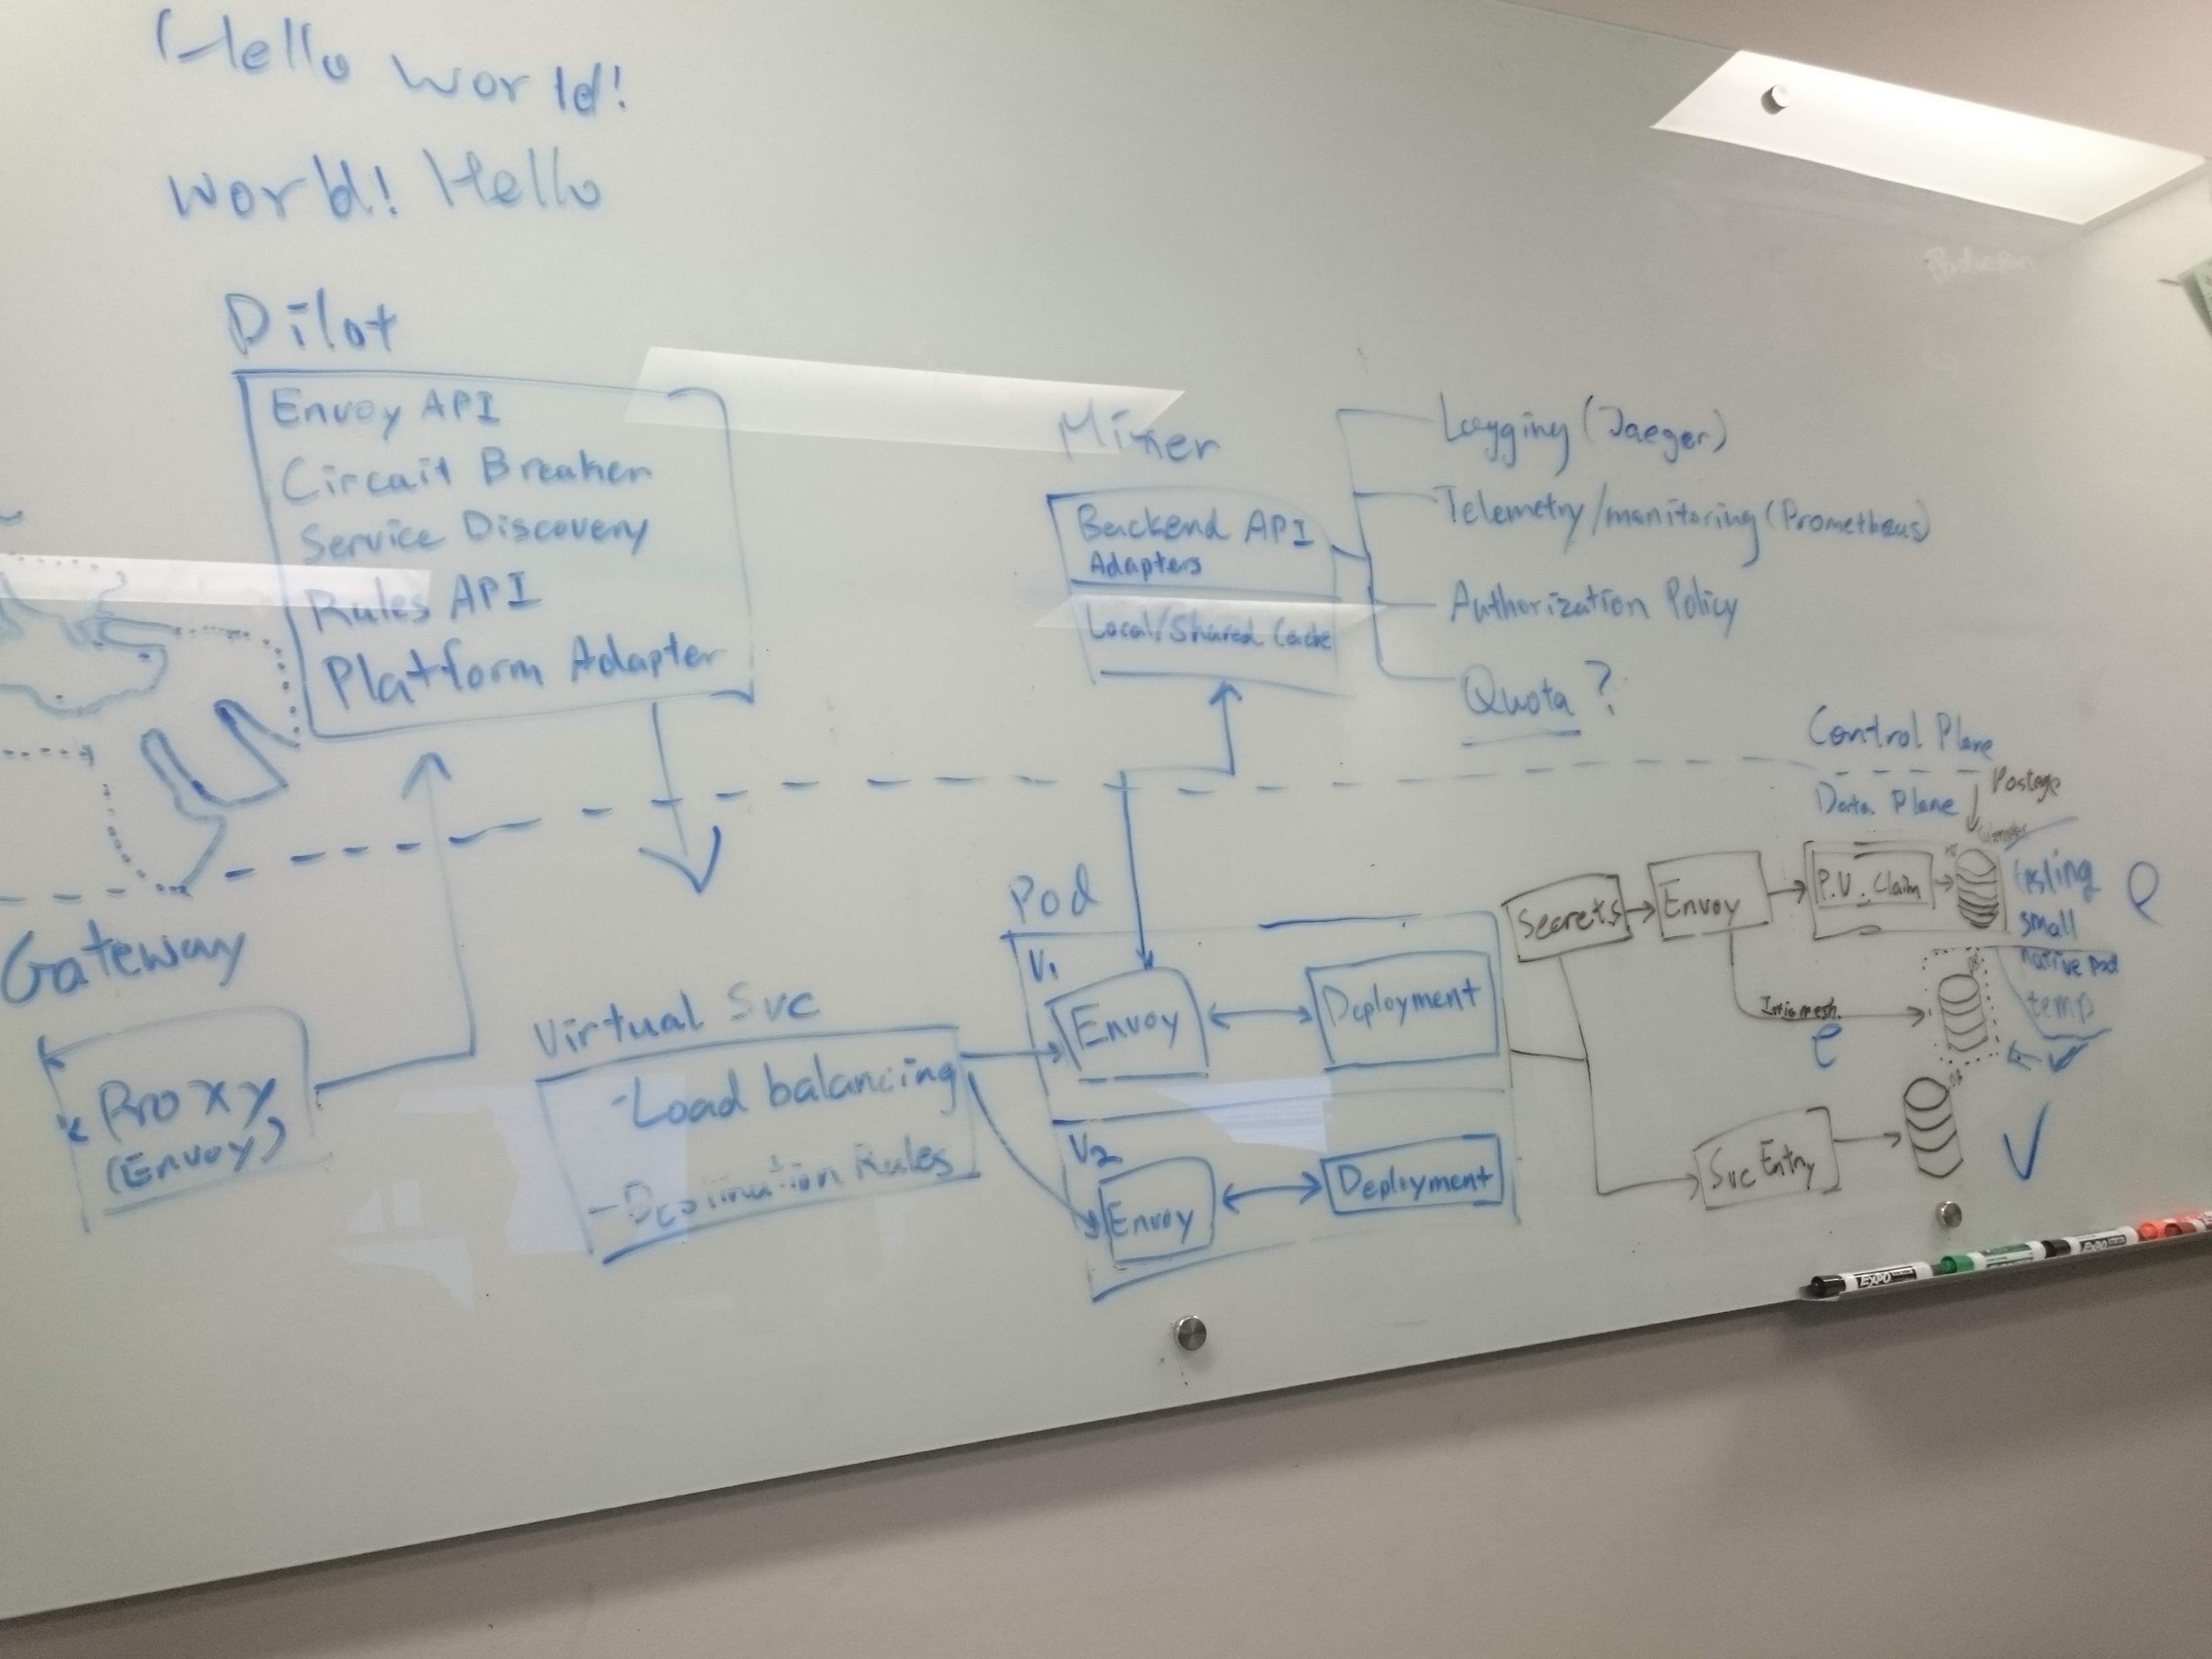 Hello world!
world! Hello
Pilot
Envoy API
Circuit Breaker
Service Discovery
Rules API
Platform Adapter
Mixer
Backend API
Adapters
Local/Shared Cache
Logging (Jaeger)
Telemetry/monitoring (Prometheus)
Authorization Policy
Quota ?
Control Plane
Data Plane
Gateway
Proxy
(Envoy)
Virtual Svc
-Load balancing
-Destination Rules
Pod
V1
Envoy
Deployment
V2
Envoy
Deployment
Secrets
Envoy
P.V. Claim
small
native pod
temp
e
e
Svc Entry
DB
EXPO
EXPO